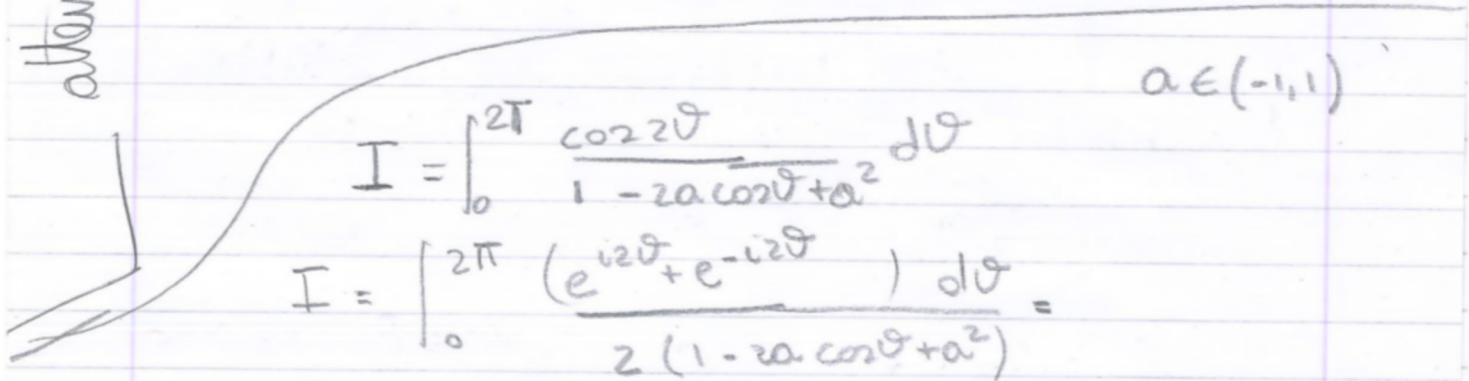 atten
a ∈ (-1,1)
I = ∫₀^{2π} cos2ϑ / (1 - 2a cosϑ + a²) dϑ
I = ∫₀^{2π} (e^{i2ϑ} + e^{-i2ϑ}) dϑ / 2(1 - 2a cosϑ + a²) =